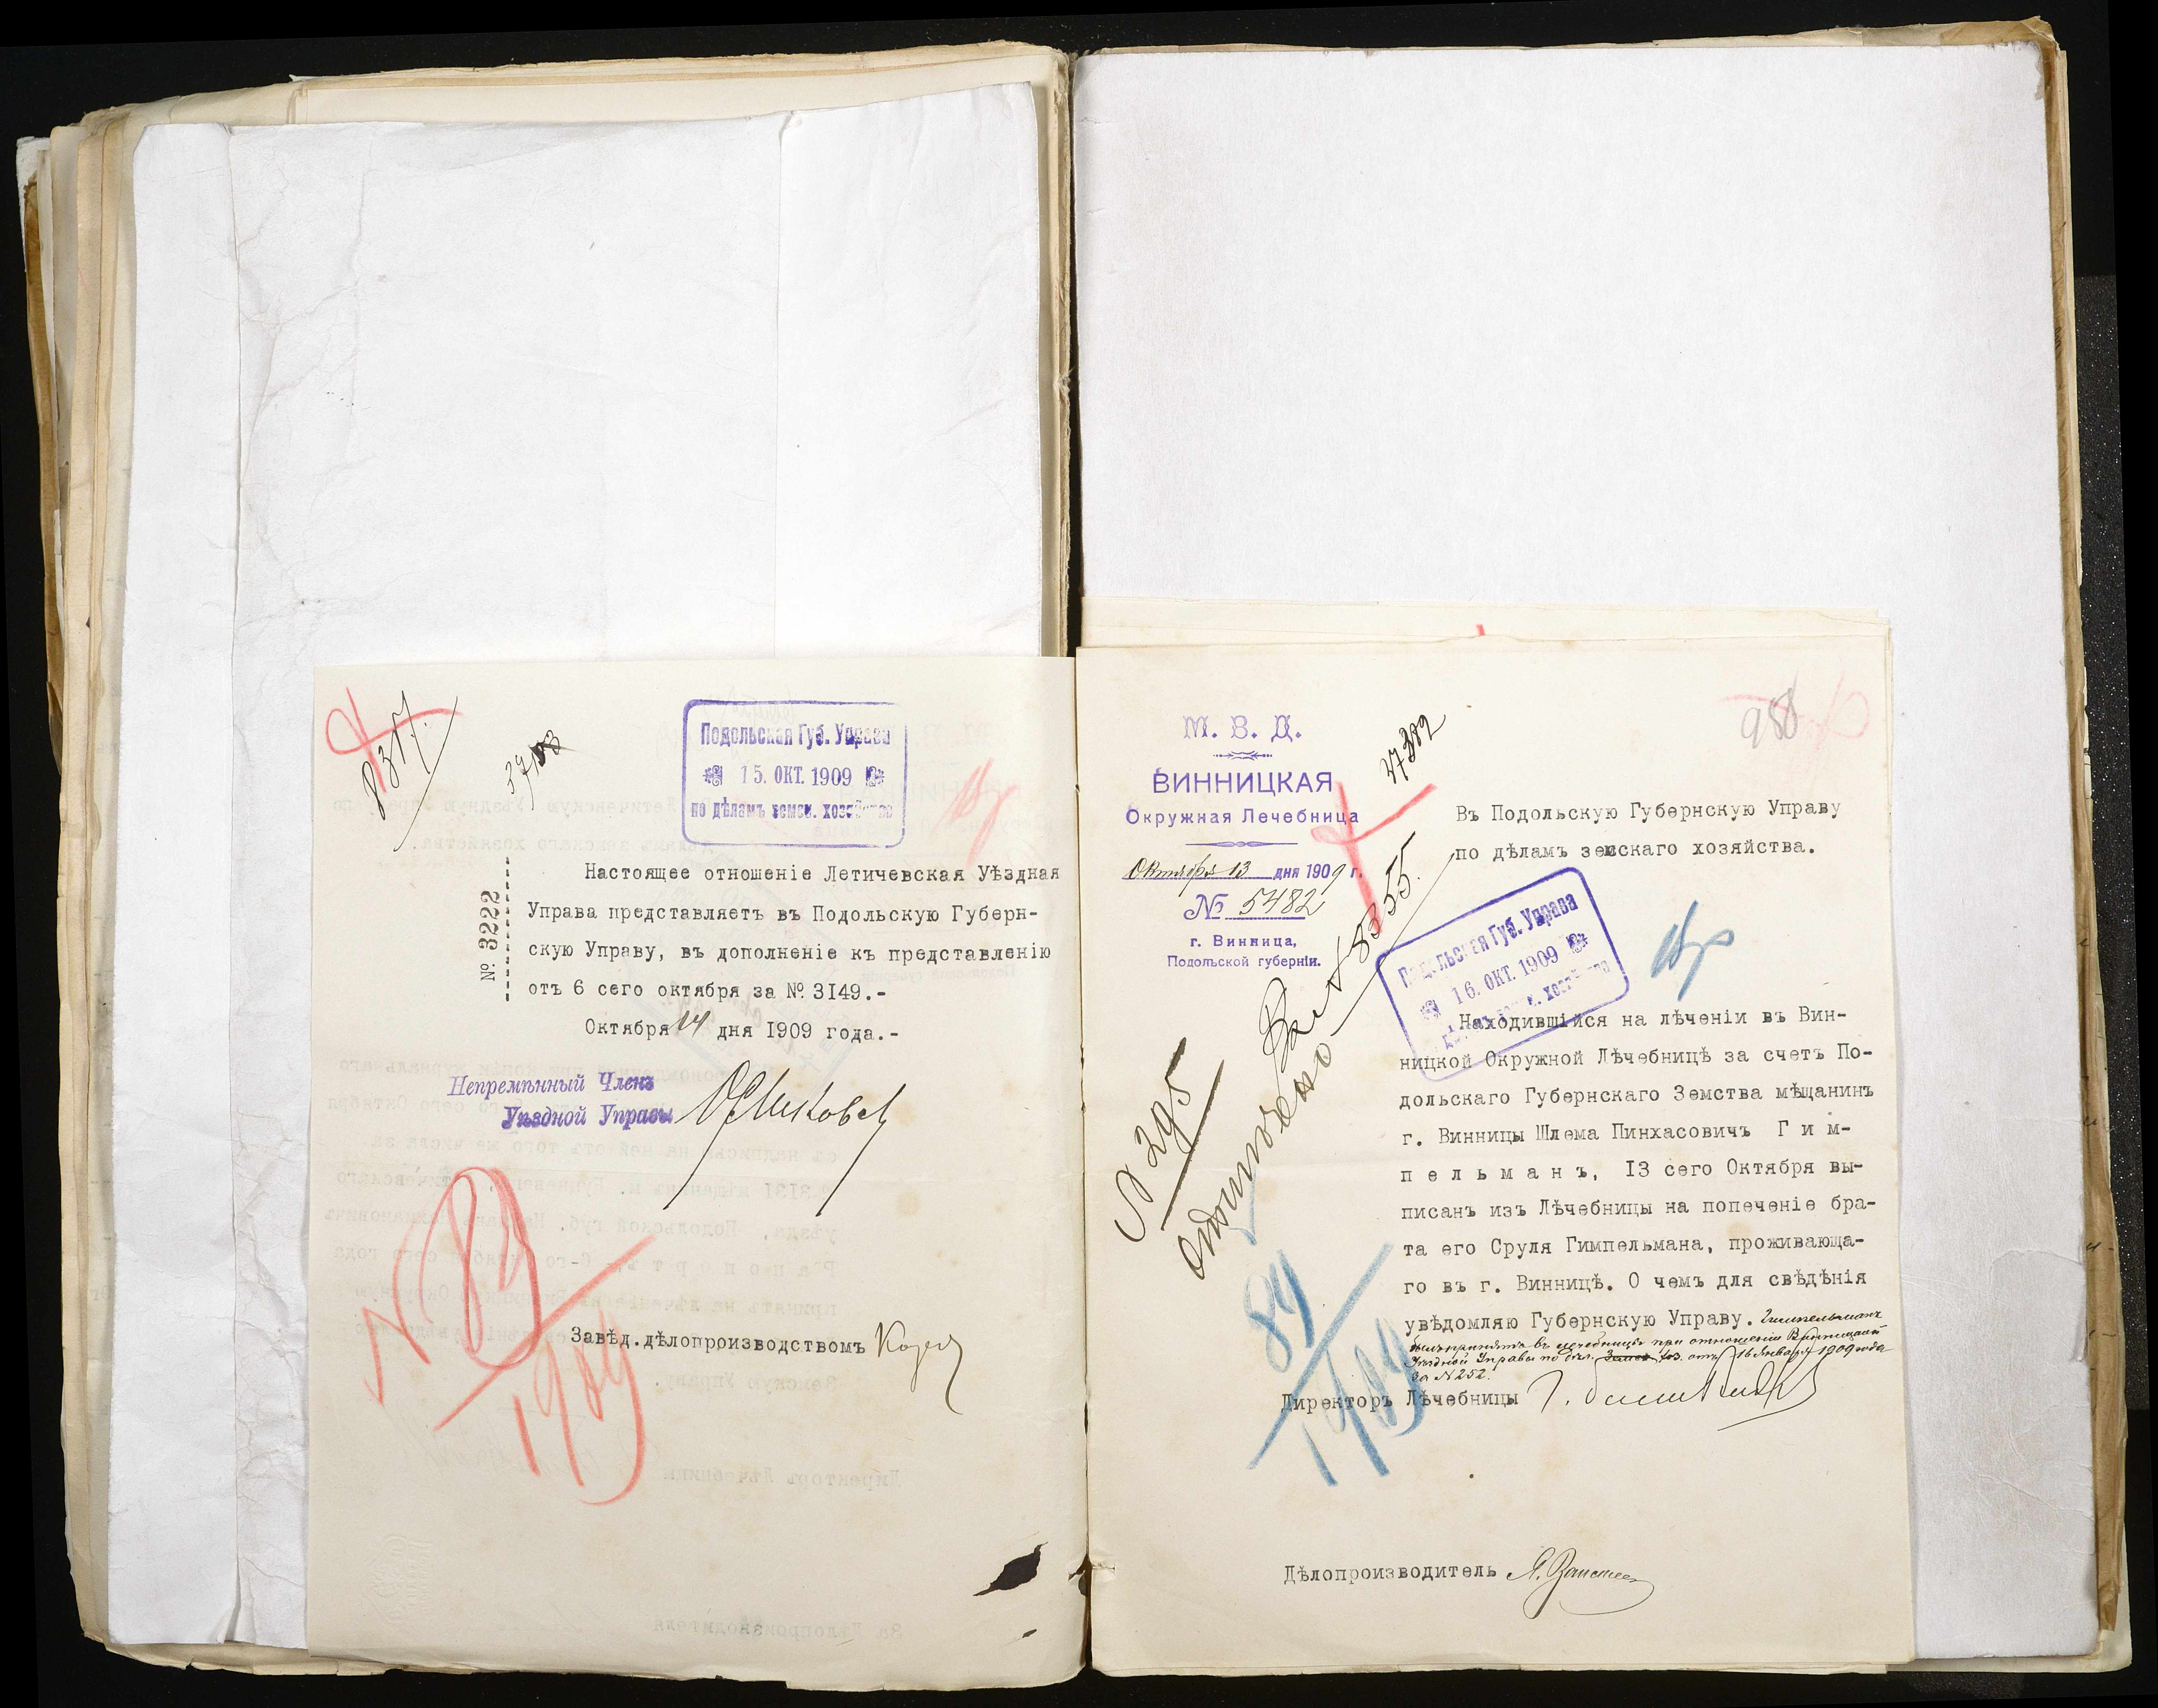 8317.
37103
Подольская Губ. Управа
15. ОКТ. 1909
по дѣламъ земск. хозяйства
№ 3222
Настоящее отношеніе Летичевская Уѣздная
Управа представляетъ въ Подольскую Губерн-
скую Управу, въ дополненіе къ представленію
отъ 6 сего октября за № 3149.-
Октября 14 дня 1909 года.-
Непремѣнный Членъ
Уѣздной Управы
N 89
1909
Завѣд.дѣлопроизводствомъ
988
М. В. Д.
ВИННИЦКАЯ
Окружная Лечебница
Октября 13 дня 1909 г.
№ 5482
г. Винница,
Подольской губерніи.
8355.
N 295
Въ Подольскую Губернскую Управу
по дѣламъ земскаго хозяйства.
Подольская Губ. Управа
16. ОКТ. 1909
Находившійся на лѣченіи въ Вин-
ницкой Окружной Лѣчебницѣ за счетъ По-
дольскаго Губернскаго Земства мѣщанинъ
г. Винницы Шлема Пинхасовичъ Г и м-
п е л ь м а н ъ, 13 сего Октября вы-
писанъ изъ Лѣчебницы на попеченіе бра-
та его Сруля Гимпельмана, проживающа-
го въ г. Винницѣ. О чемъ для свѣдѣнія
увѣдомляю Губернскую Управу. Гимпельманъ
былъ принятъ въ лечебницу при отношеніи Винницкой
Уѣздной Управы по дѣл. Земск. хоз. отъ 16 января 1909 года
за N 252.
Директоръ Лѣчебницы
89
1909
Дѣлопроизводитель